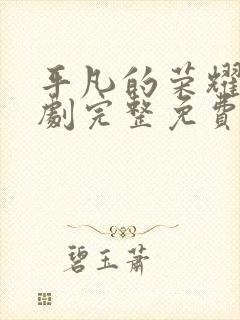 平凡的荣耀
劇完整免費
碧玉萧